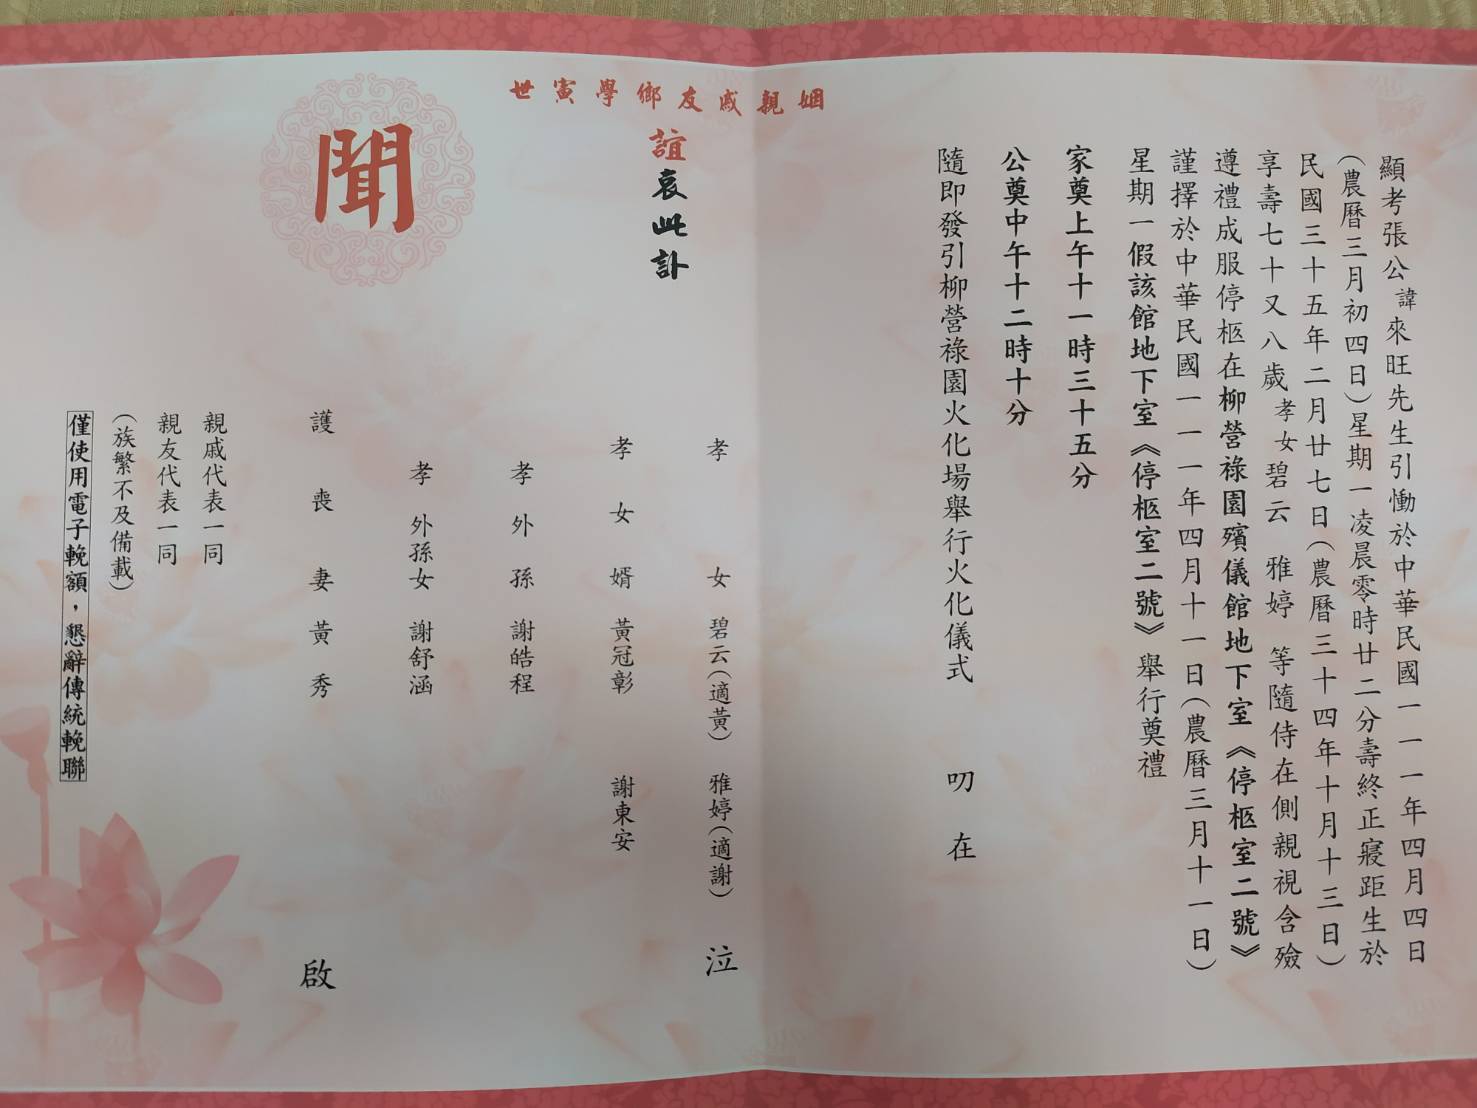 顯考張公諱來旺先生引慟於中華民國一一一年四月四日
(農曆三月初四日)星期一凌晨零時廿二分壽終正寢距生於
民國三十五年二月廿七日(農曆三十四年十月十三日)
享壽七十又八歲孝女碧云 雅婷 等隨侍在側親視含殮
遵禮成服停柩在柳營祿園殯儀館地下室《停柩室二號》
謹擇於中華民國一一一年四月十一日(農曆三月十一日)
星期一假該館地下室《停柩室二號》舉行奠禮
家奠上午十一時三十五分
公奠中午十二時十分
隨即發引柳營祿園火化場舉行火化儀式 叨在
姻親戚友鄉學寅世
誼哀此訃
聞
孝 女 碧云(適黃) 雅婷(適謝) 泣
孝 女 婿 黃冠彰 謝東安
孝 外 孫 謝皓程
孝 外孫女 謝舒涵
護 喪 妻 黃 秀 啟
親戚代表一同
親友代表一同
(族繁不及備載)
僅使用電子輓額,懇辭傳統輓聯